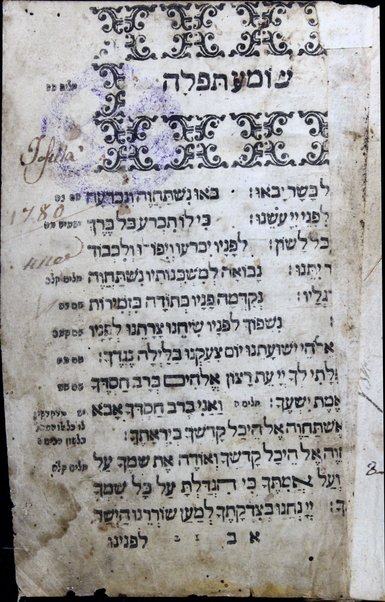 שומע תפלה
Tefilla
1780
לבשר יבאו: באו נשתחוה ונכרעה
לפני יי עשנו: כי לו תכרע כל ברך
כל לשון: לפניו יכרעו ויפולו ולכבוד
נבואה למשכנותיו נשתחוה
רגליו: נקדמה פניו בתודה בזמירות
נשפוך לפניו שיחנו צרתנו לפניו
אלהי ישועתנו יום צעקנו בלילה נגדך:
לך יי עת רצון אלהים ברב חסדך
אמת ישעך: ואני ברב חסדך אבא
אשתחוה אל היכל קדשך ביראתך:
אל היכל קדשך ואודה את שמך על
ועל אמתך כי הגדלת על כל שמך
יי נחנו בצדקתך למען שוררנו הישר
א ב לפנינו